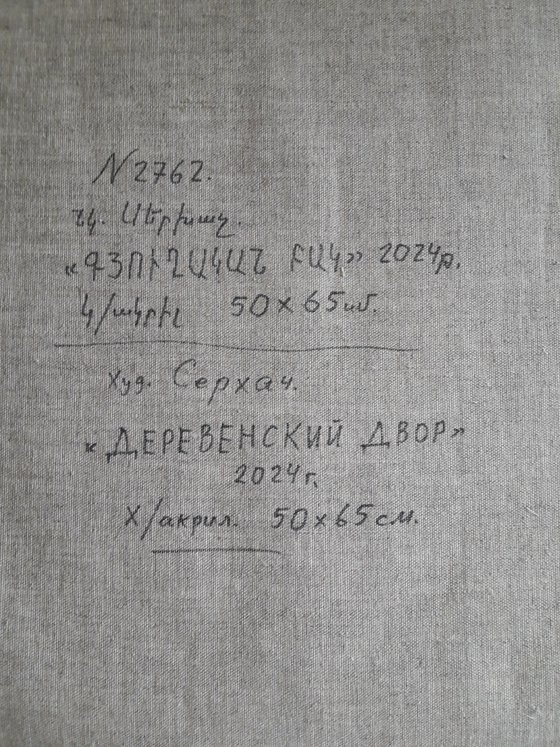 N 2762.
նկ. Սերխաչ.
«ԳՅՈՒՂԱԿԱՆ ԲԱԿ» 2024թ.
Կ/ակրիլ 50×65սմ.
Худ. Серхач.
«ДЕРЕВЕНСКИЙ ДВОР»
2024г.
Х/акрил. 50×65см.